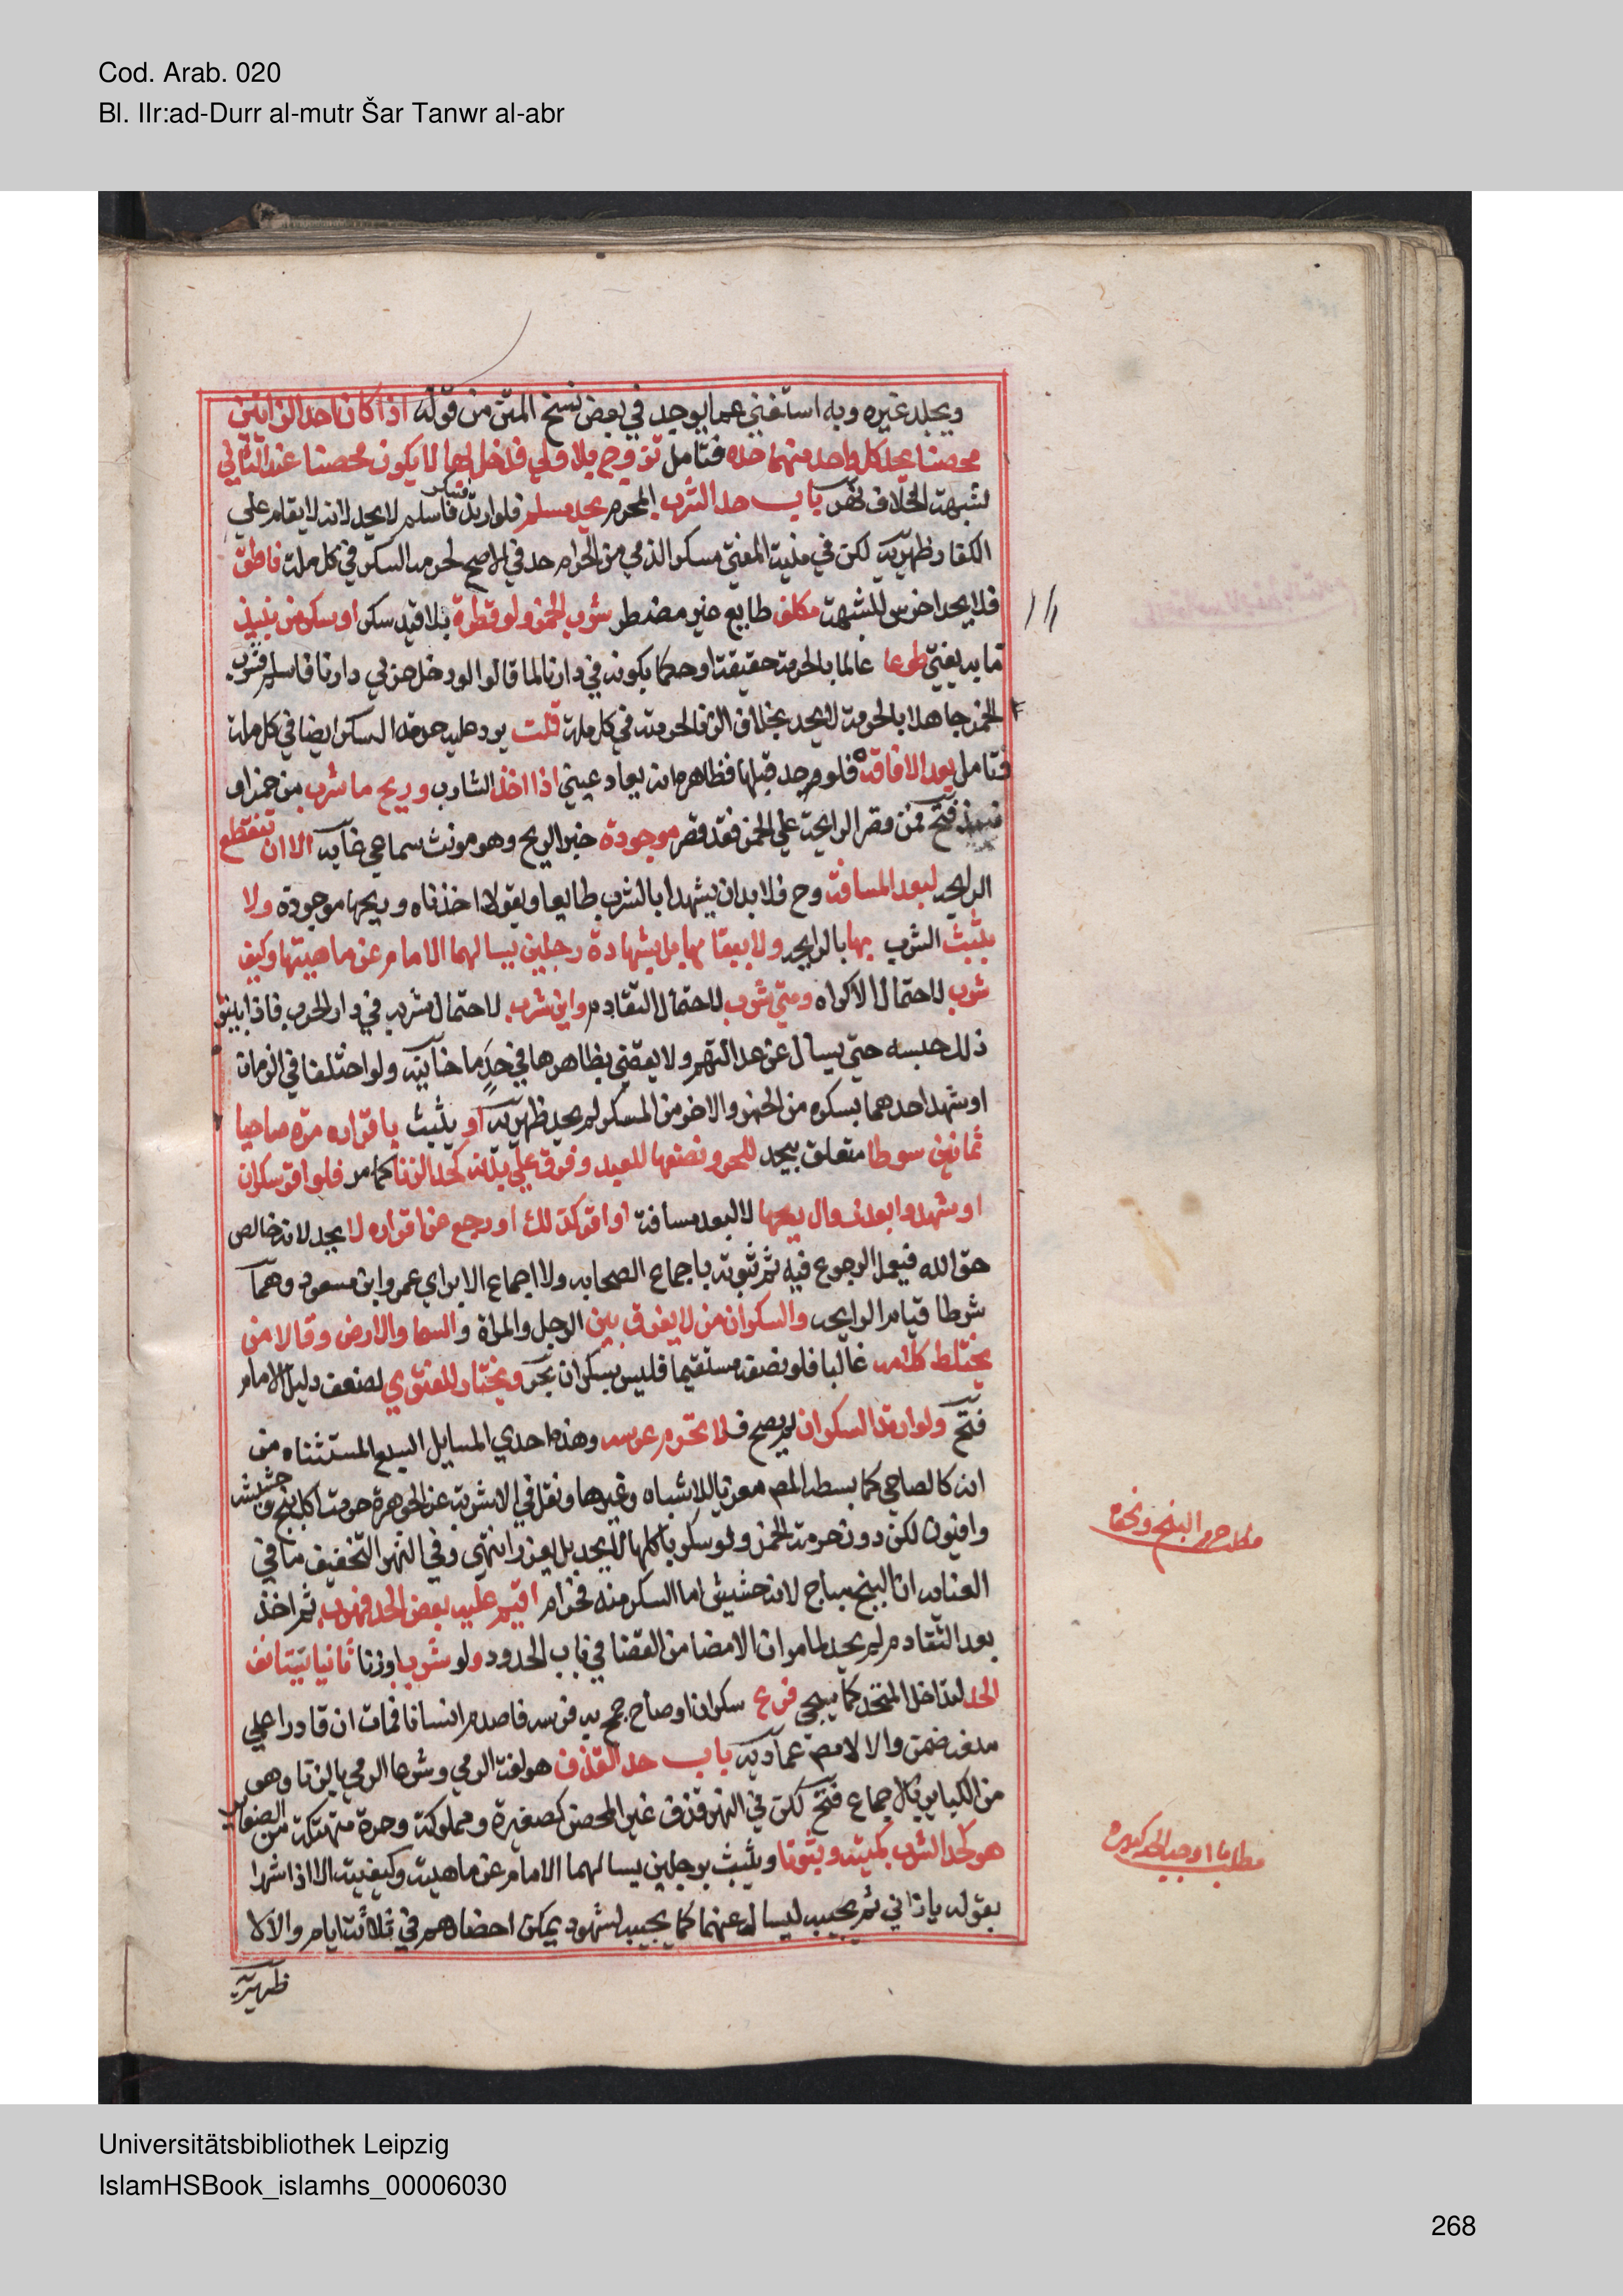 Cod. Arab. 020
Bl. IIr:ad-Durr al-mutr Šar Tanwr al-abr
ويجلد غيره وبه استغني عما يوجد في بعض نسخ المتن من قوله اذا كان احد الزانيين
محصنا يحد كل واحد منهما حده فتامل تزوج بلا ولي فدخل بها لا يكون محصنا عند الثاني
لشبهة الخلاف نهر باب حد الشرب المحرم يحد مسلم فلو ارتد فسكر فاسلم لا يحد لانه لا يقام علي
الكفار ظهيريه لكن في منية المفتي سكر الذمي من الحرام حد في الاصح لحرمة السكر في كل ملة ناطق
فلا يحد اخرس للشبهة مكلف طايع غير مضطر شرب الخمر ولو قطرة بلا قيد سكر او سكر من نبيذ
ما به يفتي طوعا عالما بالحرمة حقيقة او حكما بكونه في دارنا لما قالوا لو دخل حربي دارنا فاسلم فشرب
الخمر جاهلا بالحرمة لا يحد بخلاف الزنا لحرمته في كل ملة قلت يرد عليه حرمة السكر ايضا في كل ملة
فتامل بعد الافاقة فلو وحد قبلها فظاهره انه يعاد عيني اذا اخذ الشارب وريح ما شرب من خمر او
نبيذ فتح فمن قصر الرايحة علي الخمر فقد قصر موجودة خبر الريح وهو مونث سماعي غايه الا ان تنقطع
الرايحه لبعد المسافة وح فلا بد ان يشهدا بالشرب طايعا ويقولا اخذناه وريحها موجودة ولا
يثبت الشرب بها بالرايحه ولا بتقايها بل بشهادة رجلين يسالهما الامام عن ماهيتها وكيف
شرب لاحتمال الاكراه ومتي شرب لاحتمال التقادم واين شرب لاحتمال شربه في دار الحرب فاذا بينو
ذلك حبسه حتي يسال عن عدالتهم ولا يقضي بظاهرها في حد ما خانيه ولو اختلفا في الزمان
او شهد احدهما بسكره من الخمر والاخر من السكر لم يحد ظهيريه او يثبت باقراره مرة صاحيا
ثمانين سوطا متعلق بيحد للحر ونصفها للعبد وفرق علي بدنه كحد الزنا كما مر فلو اقر سكران
او شهدوا بعد زوال ريحها لا لبعد مسافة او اقر كذلك او رجع عن اقراره لا يحد لانه خالص
حق الله فيعمل الرجوع فيه ثم ثبوته باجماع الصحابه ولا اجماع الا براي عمر وابن مسعود وهما
شرطا قيام الرايحه والسكران من لا يفرق بين الرجل والمراة والسما والارض وقالا من
يختلط كلامه غالبا فلو نصفه مستقيما فليس بسكران بحر ويختار للفتوي لضعف دليل الامام
فتح ولو ارتد السكران لم يصح فلا تحرم عرسه وهذه احدي المسايل السبع المستثناه من
انه كالصاحي كما بسطه المص معزيا للاشباه وغيرها ونقل في الاشربة عن الجوهرة حرمة اكل بنج وحشيشه
وافيون لكن دون حرمة الخمر ولو سكر باكلها لا يحد بل يعزر انتهي وفي النهر التحقيق ما في
العنايه ان البنج مباح لانه حشيش اما السكر منه فحرام اقيم عليه بعض الحد فهرب ثم اخذ
بعد التقادم لم يحد لما مر ان الامضا من القضا في باب الحدود ولو شرب او زنا ثانيا يستانف
الحد لتداخل المتحد كما سيجي فرع سكران او صاح جمح به فرسه فاصدم انسانا فمات ان قادرا علي
منعه ضمن والا لا مص عماديه باب حد القذف هو لغة الرمي وشرعا الرمي بالزنا وهو
من الكباير بالاجماع فتح لكن في النهر قذف غير المحصن كصغيرة ومملوكة وحرة متهتكة من الصغاير
هو كحد الشرب كمية وثبوتا ويثبت برجلين يسالهما الامام عن ماهيته وكيفيته الا اذا شهدا
بقوله يا زاني ثم يحبسه ليسال عنهما كما يحبسه لشهود يمكن احضارهم في ثلاثة ايام والا لا
ظهيريه
مطلب حرم البنج ونحوه
Universitätsbibliothek Leipzig
IslamHSBook_islamhs_00006030
268